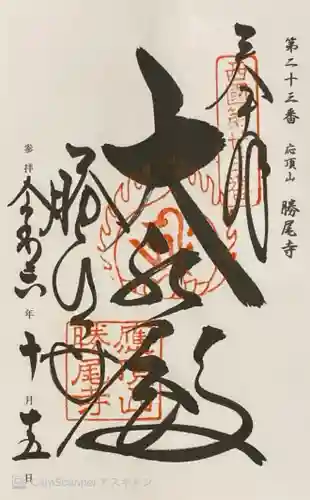 第二十三番 応頂山 勝尾寺
奉拝
大悲殿
勝尾寺
参拝 令和 年 十月 十五日
西國第廿三番
應頂山
勝尾寺
CamScanner でスキャン